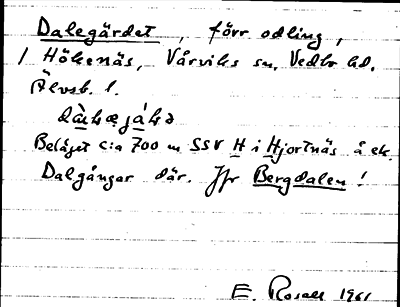 Dalegärdet, förr odling,
/ Hökenäs, Vårviks sn, Vedbo hd.
Älvsb. l.
Beläget c:a 700 m SSV H i Hjortnäs å ek.
Dalgångar där. Jfr Bergdalen!
E. Rosell 1961